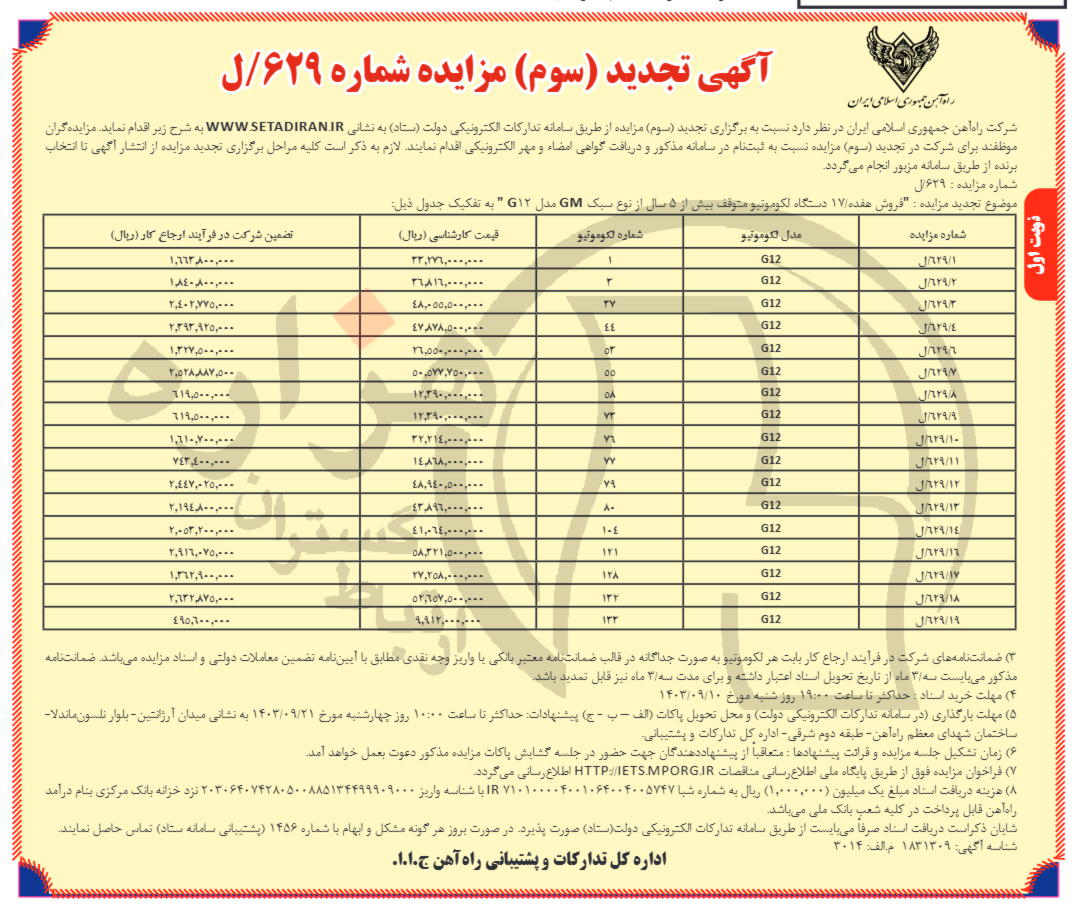 راه‌آهن جمهوری اسلامی ایران
آگهی تجدید (سوم) مزایده شماره ۶۲۹/ل
نوبت اول
شرکت راه‌آهن جمهوری اسلامی ایران در نظر دارد نسبت به برگزاری تجدید (سوم) مزایده از طریق سامانه تدارکات الکترونیکی دولت (ستاد) به نشانی WWW.SETADIRAN.IR به شرح زیر اقدام نماید. مزایده‌گران
موظفند برای شرکت در تجدید (سوم) مزایده نسبت به ثبت‌نام در سامانه مذکور و دریافت گواهی امضاء و مهر الکترونیکی اقدام نمایند. لازم به ذکر است کلیه مراحل برگزاری تجدید مزایده از انتشار آگهی تا انتخاب
برنده از طریق سامانه مزبور انجام می‌گردد.
شماره مزایده : ۶۲۹/ل
موضوع تجدید مزایده : "فروش هفده/۱۷ دستگاه لکوموتیو متوقف بیش از ۵ سال از نوع سبک GM مدل G۱۲ " به تفکیک جدول ذیل:
شماره مزایده مدل لکوموتیو شماره لکوموتیو قیمت کارشناسی (ریال) تضمین شرکت در فرآیند ارجاع کار (ریال)
۶۲۹/۱/ل G12 ۱ ۳۳,۲۷۶,۰۰۰,۰۰۰ ۱,۶۶۳,۸۰۰,۰۰۰
۶۲۹/۲/ل G12 ۳ ۳۶,۸۱۶,۰۰۰,۰۰۰ ۱,۸٤۰,۸۰۰,۰۰۰
۶۲۹/۳/ل G12 ۳۷ ٤۸,۰۵۵,۵۰۰,۰۰۰ ۲,٤۰۲,۷۷۵,۰۰۰
۶۲۹/٤/ل G12 ٤٤ ٤۷,۸۷۸,۵۰۰,۰۰۰ ۲,۳۹۳,۹۲۵,۰۰۰
۶۲۹/۶/ل G12 ۵۳ ۲۶,۵۵۰,۰۰۰,۰۰۰ ۱,۳۲۷,۵۰۰,۰۰۰
۶۲۹/۷/ل G12 ۵۵ ۵۰,۵۷۷,۷۵۰,۰۰۰ ۲,۵۲۸,۸۸۷,۵۰۰
۶۲۹/۸/ل G12 ۵۸ ۱۲,۳۹۰,۰۰۰,۰۰۰ ۶۱۹,۵۰۰,۰۰۰
۶۲۹/۹/ل G12 ۷۳ ۱۲,۳۹۰,۰۰۰,۰۰۰ ۶۱۹,۵۰۰,۰۰۰
۶۲۹/۱۰/ل G12 ۷۶ ۳۲,۲۱٤,۰۰۰,۰۰۰ ۱,۶۱۰,۷۰۰,۰۰۰
۶۲۹/۱۱/ل G12 ۷۷ ۱٤,۸۶۸,۰۰۰,۰۰۰ ۷٤۳,٤۰۰,۰۰۰
۶۲۹/۱۲/ل G12 ۷۹ ٤۸,۹٤۰,۵۰۰,۰۰۰ ۲,٤٤۷,۰۲۵,۰۰۰
۶۲۹/۱۳/ل G12 ۸۰ ٤۳,۸۹۶,۰۰۰,۰۰۰ ۲,۱۹٤,۸۰۰,۰۰۰
۶۲۹/۱٤/ل G12 ۱۰٤ ٤۱,۰۶٤,۰۰۰,۰۰۰ ۲,۰۵۳,۲۰۰,۰۰۰
۶۲۹/۱۶/ل G12 ۱۲۱ ۵۸,۳۲۱,۵۰۰,۰۰۰ ۲,۹۱۶,۰۷۵,۰۰۰
۶۲۹/۱۷/ل G12 ۱۲۸ ۲۷,۲۵۸,۰۰۰,۰۰۰ ۱,۳۶۲,۹۰۰,۰۰۰
۶۲۹/۱۸/ل G12 ۱۳۲ ۵۲,۶۵۷,۵۰۰,۰۰۰ ۲,۶۳۲,۸۷۵,۰۰۰
۶۲۹/۱۹/ل G12 ۱۳۳ ۹,۹۱۲,۰۰۰,۰۰۰ ٤۹۵,۶۰۰,۰۰۰
۳) ضمانت‌نامه‌های شرکت در فرآیند ارجاع کار بابت هر لکوموتیو به صورت جداگانه در قالب ضمانت‌نامه معتبر بانکی یا واریز وجه نقدی مطابق با آیین‌نامه تضمین معاملات دولتی و اسناد مزایده می‌باشد. ضمانت‌نامه
مذکور می‌بایست سه/۳ ماه از تاریخ تحویل اسناد اعتبار داشته و برای مدت سه/۳ ماه نیز قابل تمدید باشد.
۴) مهلت خرید اسناد : حداکثر تا ساعت ۱۹:۰۰ روز شنبه مورخ ۱۴۰۳/۰۹/۱۰
۵) مهلت بارگذاری (در سامانه تدارکات الکترونیکی دولت) و محل تحویل پاکات (الف – ب – ج) پیشنهادات: حداکثر تا ساعت ۱۰:۰۰ روز چهارشنبه مورخ ۱۴۰۳/۰۹/۲۱ به نشانی میدان آرژانتین- بلوار نلسون‌ماندلا-
ساختمان شهدای معظم راه‌آهن- طبقه دوم شرقی- اداره کل تدارکات و پشتیبانی.
۶) زمان تشکیل جلسه مزایده و قرائت پیشنهادها : متعاقباً از پیشنهاددهندگان جهت حضور در جلسه گشایش پاکات مزایده مذکور دعوت بعمل خواهد آمد.
۷) فراخوان مزایده فوق از طریق پایگاه ملی اطلاع‌رسانی مناقصات HTTP://IETS.MPORG.IR اطلاع‌رسانی می‌گردد.
۸) هزینه دریافت اسناد مبلغ یک میلیون (۱,۰۰۰,۰۰۰) ریال به شماره شبا IR ۷۱۰۱۰۰۰۰۴۰۰۱۰۶۴۰۰۴۰۰۵۷۴۷ با شناسه واریز ۲۰۳۰۶۴۰۷۴۲۸۰۵۰۰۸۸۵۱۳۴۴۹۹۹۰۹۰۰۰ نزد خزانه بانک مرکزی بنام درآمد
راه‌آهن قابل پرداخت در کلیه شعب بانک ملی می‌باشد.
شایان ذکراست دریافت اسناد صرفاً می‌بایست از طریق سامانه تدارکات الکترونیکی دولت(ستاد) صورت پذیرد. در صورت بروز هر گونه مشکل و ابهام با شماره ۱۴۵۶ (پشتیبانی سامانه ستاد) تماس حاصل نمایند.
شناسه آگهی: ۱۸۳۱۳۰۹ م.الف: ۳۰۱۴
اداره کل تدارکات و پشتیبانی راه آهن ج.ا.ا.
هزاره
گستران
ارتباط